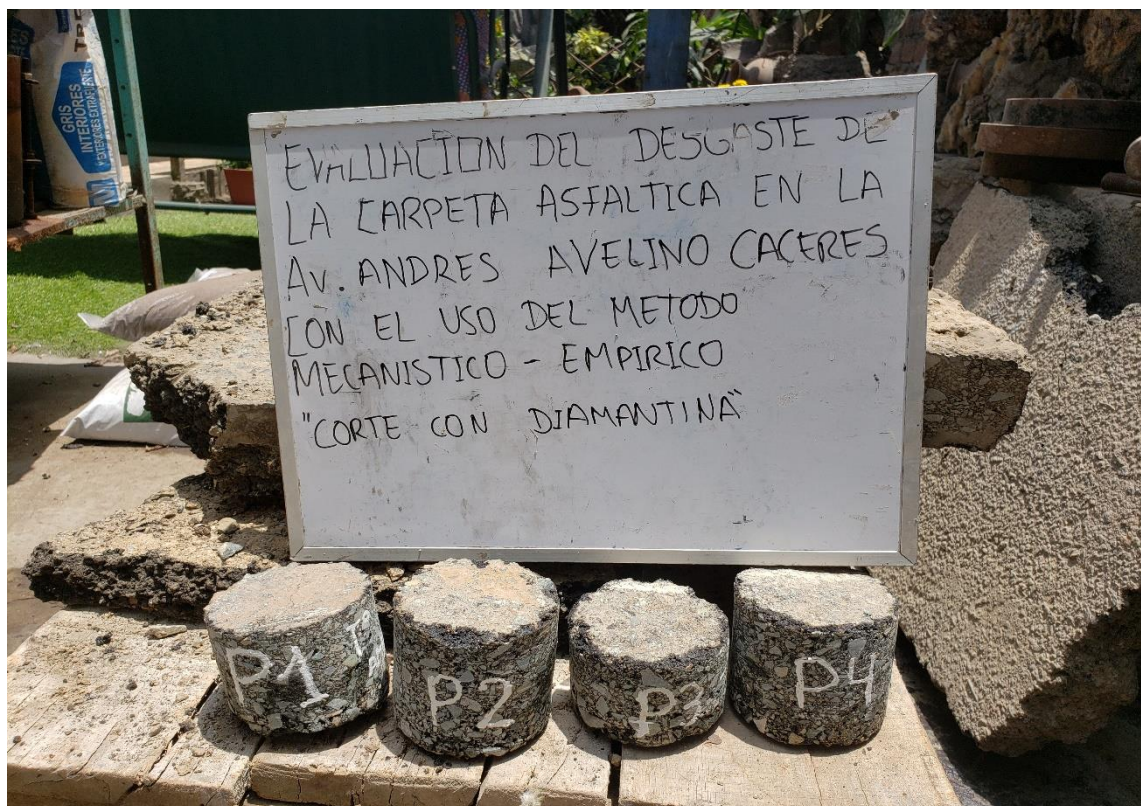 GRIS
INTERIORES
EVALUACION DEL DESGASTE DE
LA CARPETA ASFALTICA EN LA
AV. ANDRES AVELINO CACERES
CON EL USO DEL METODO
MECANISTICO - EMPIRICO
"CORTE CON DIAMANTINA"
P1
P2
P3
P4